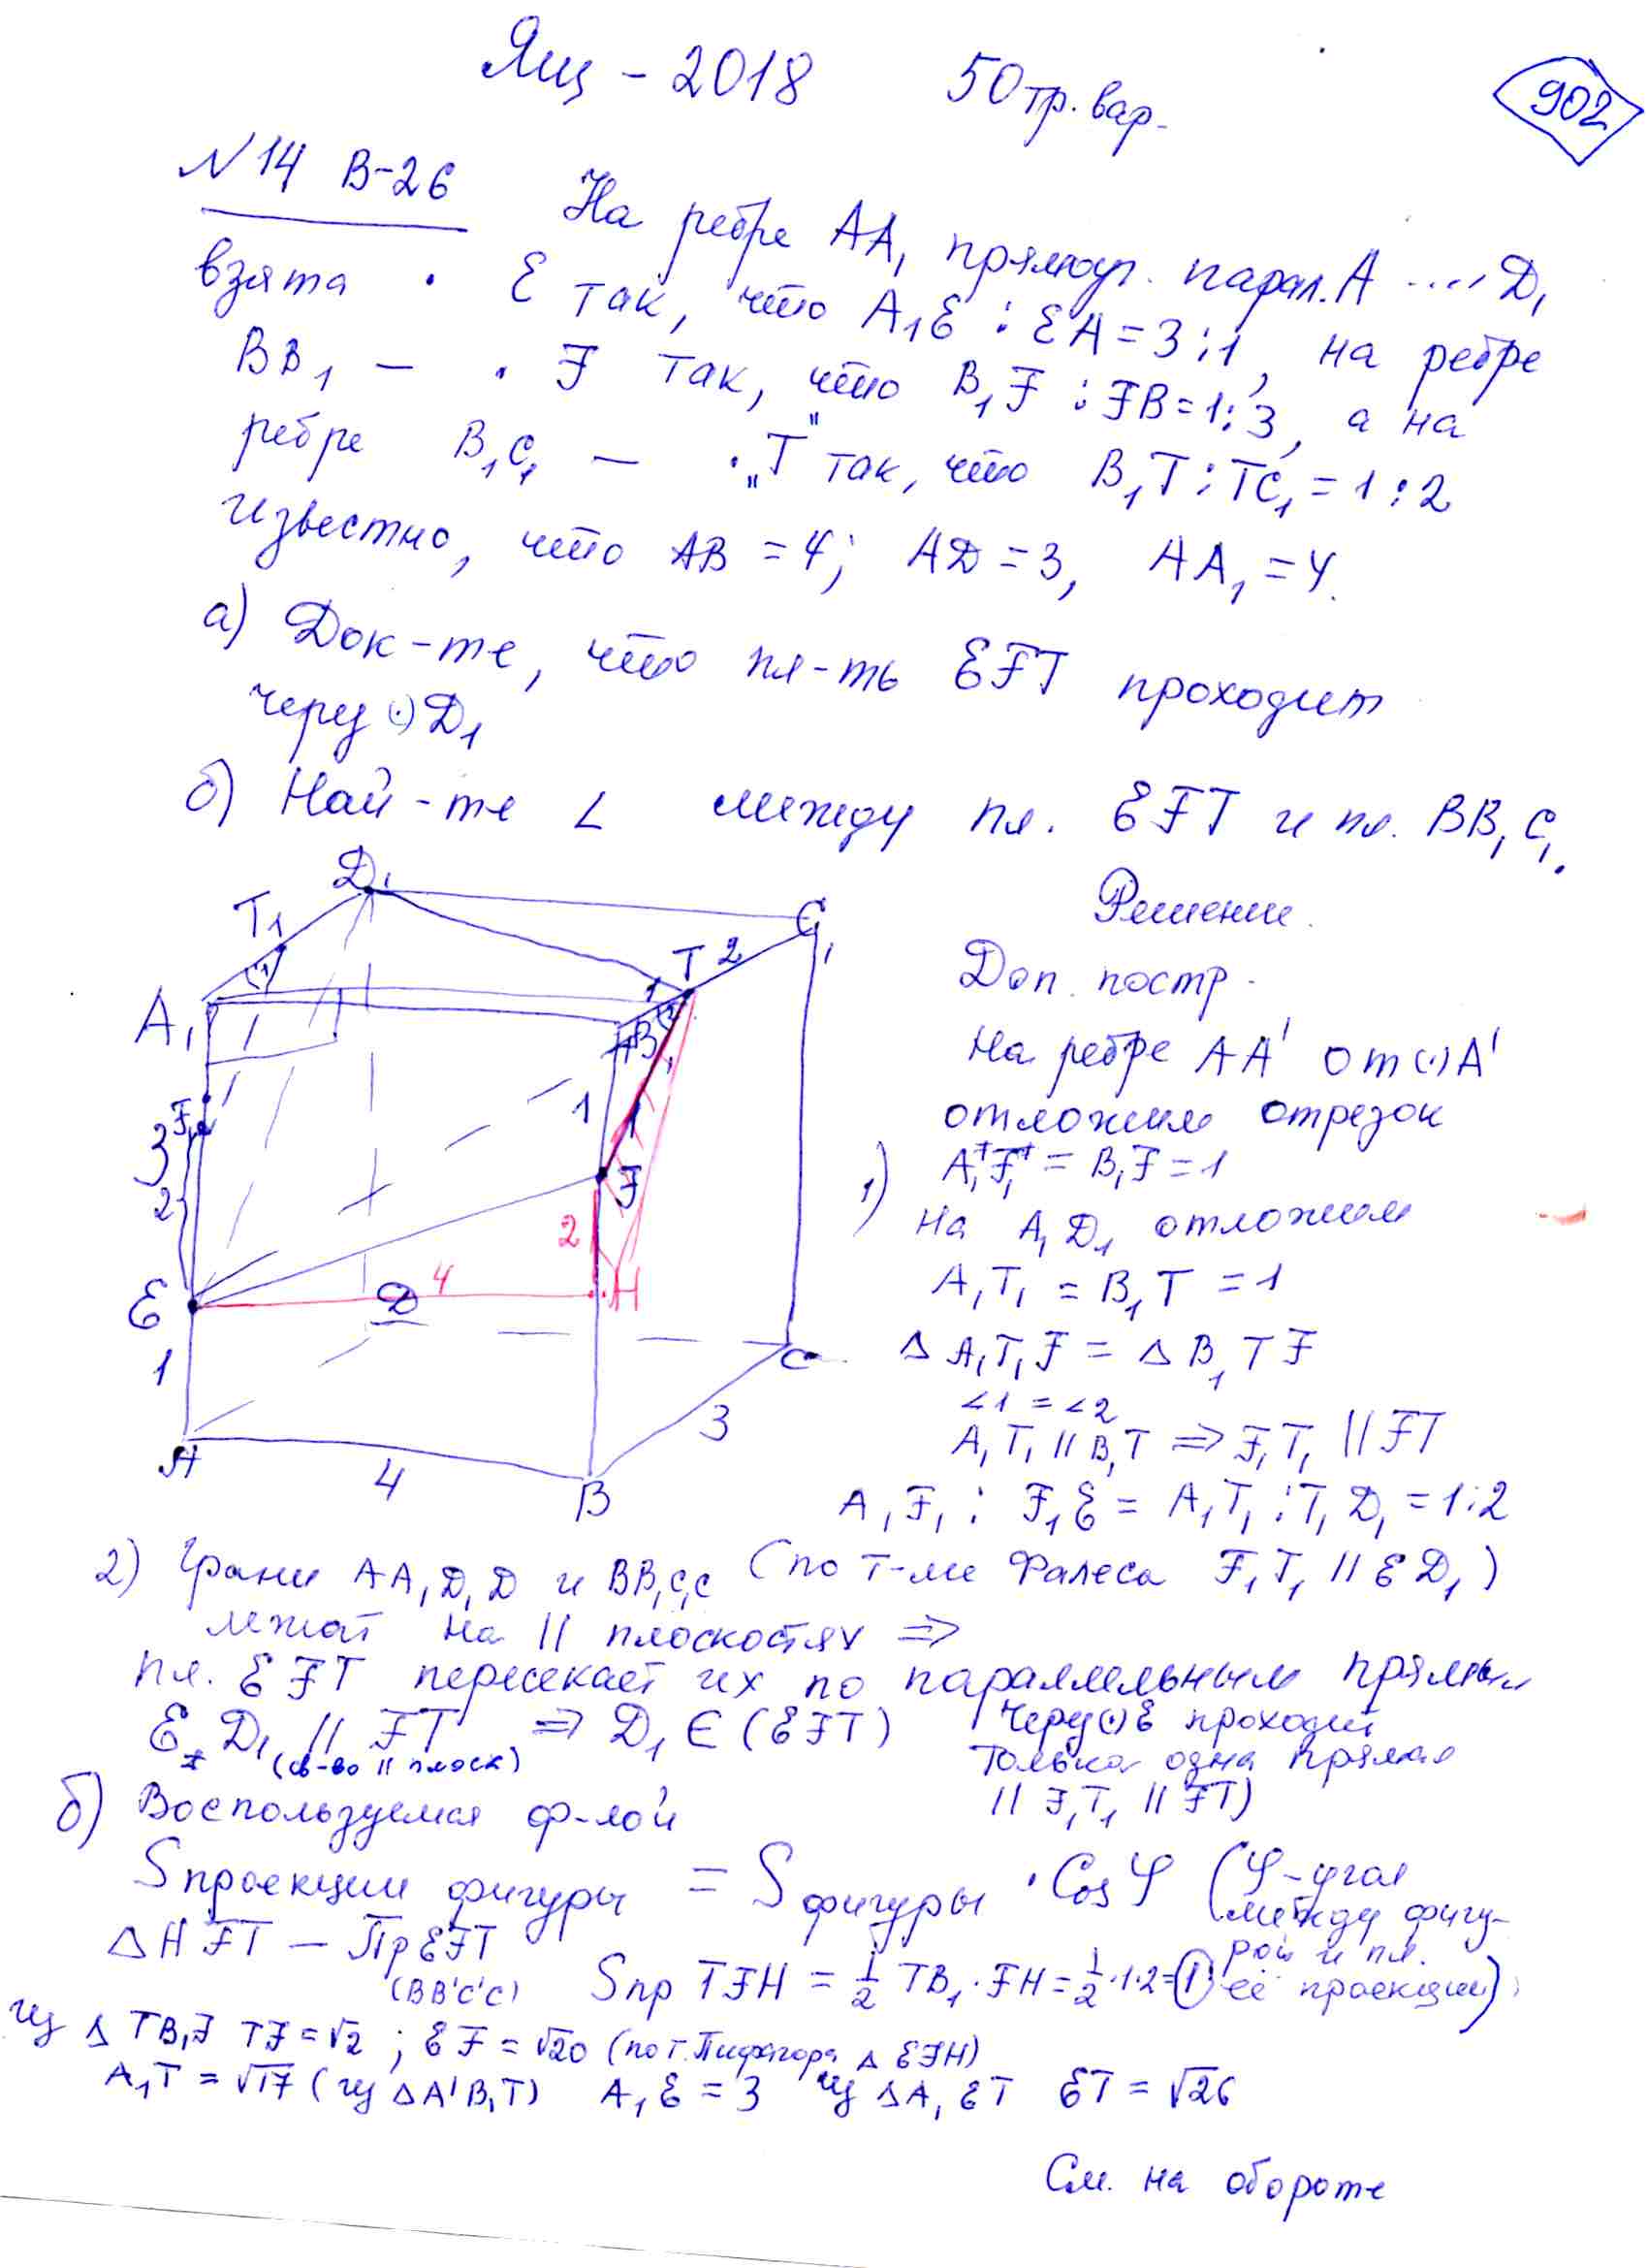 Ящ - 2018 50 тр. вар.
902
N 14 В-26 На ребре АА₁ прямоуг. парал. А .... D₁
взята • E так, что A₁E : EA = 3:1, на ребре
BB₁ — • F так, что B₁F : FB = 1:3, а на
ребре B₁C₁ — • "T" так, что B₁T : TC₁ = 1:2
Известно, что AB = 4; AD = 3, AA₁ = 4.
а) Док-те, что пл-ть EFT проходит
через (·) D₁
б) Най-те ∠ между пл. EFT и пл. BB₁C₁.
D₁
T₁
C₁
T 2
1
A₁
B₁
F₁
1
3
2
F
2
4
H
E
D
1
C
3
A
4
B
Решение.
Доп. постр.
На ребре AA' от (·) A'
отложим отрезок
A₁F₁ = B₁F = 1
1) На A₁D₁ отложим
A₁T₁ = B₁T = 1
Δ A₁T₁F = Δ B₁TF
∠1 = ∠2
A₁T₁ || B₁T ⇒ F₁T₁ || FT
A₁F₁ : F₁E = A₁T₁ : T₁D₁ = 1:2
2) Грани AA₁D₁D и BB₁C₁C (по т-ме Фалеса F₁T₁ || ED₁)
лежат на || плоскостях ⇒
пл. EFT пересекает их по параллельным прямым
ED₁ || FT ⇒ D₁ ∈ (EFT) (через (·) E проходит
(св-во || плоск) только одна прямая
|| F₁T₁ || FT)
б) Воспользуемся ф-лой
Sпроекции фигуры = Sфигуры · Cos φ (φ-угол
между фигу-
рой и пл.
её проекции)
ΔHFT — Пр EFT
(BB'C'C) Sпр TFH = 1/2 TB₁ · FH = 1/2 · 1 · 2 = 1
из Δ TB₁F TF = √2 ; EF = √20 (по т. Пифагора Δ EFH)
A₁T = √17 (из ΔA'B₁T) A₁E = 3 из ΔA₁ET ET = √26
См. на обороте